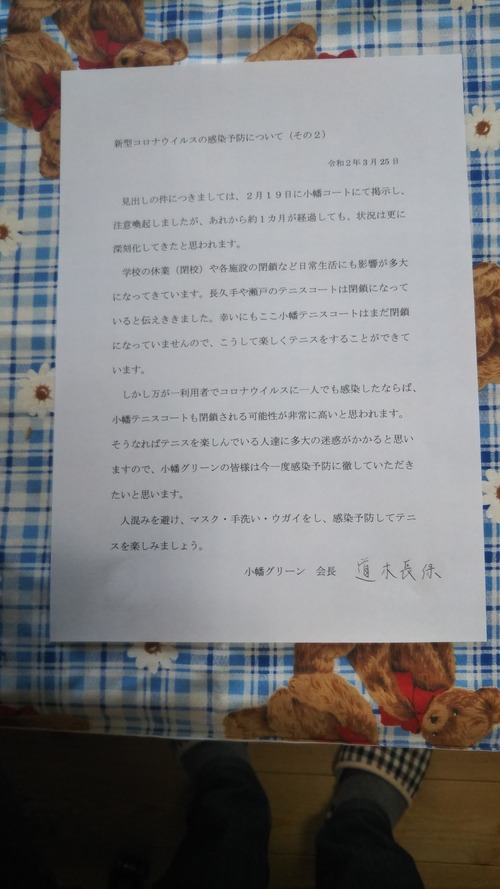 新型コロナウイルスの感染予防について（その２）
令和２年３月２５日
見出しの件につきましては、２月１９日に小幡コートにて掲示し、
注意喚起しましたが、あれから約１カ月が経過しても、状況は更に
深刻化してきたと思われます。
学校の休業（閉校）や各施設の閉鎖など日常生活にも影響が多大
になってきています。長久手や瀬戸のテニスコートは閉鎖になって
いると伝えききました。幸いにもここ小幡テニスコートはまだ閉鎖
になっていませんので、こうして楽しくテニスをすることができて
います。
しかし万が一利用者でコロナウイルスに一人でも感染したならば、
小幡テニスコートも閉鎖される可能性が非常に高いと思われます。
そうなればテニスを楽しんでいる人達に多大の迷惑がかかると思い
ますので、小幡グリーンの皆様は今一度感染予防に徹していただき
たいと思います。
人混みを避け、マスク・手洗い・ウガイをし、感染予防してテニ
スを楽しみましょう。
小幡グリーン　会長　道木長保